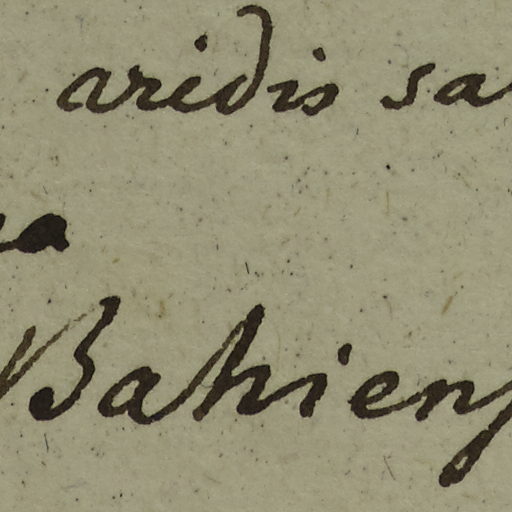 aridis sa
a
Bahiens